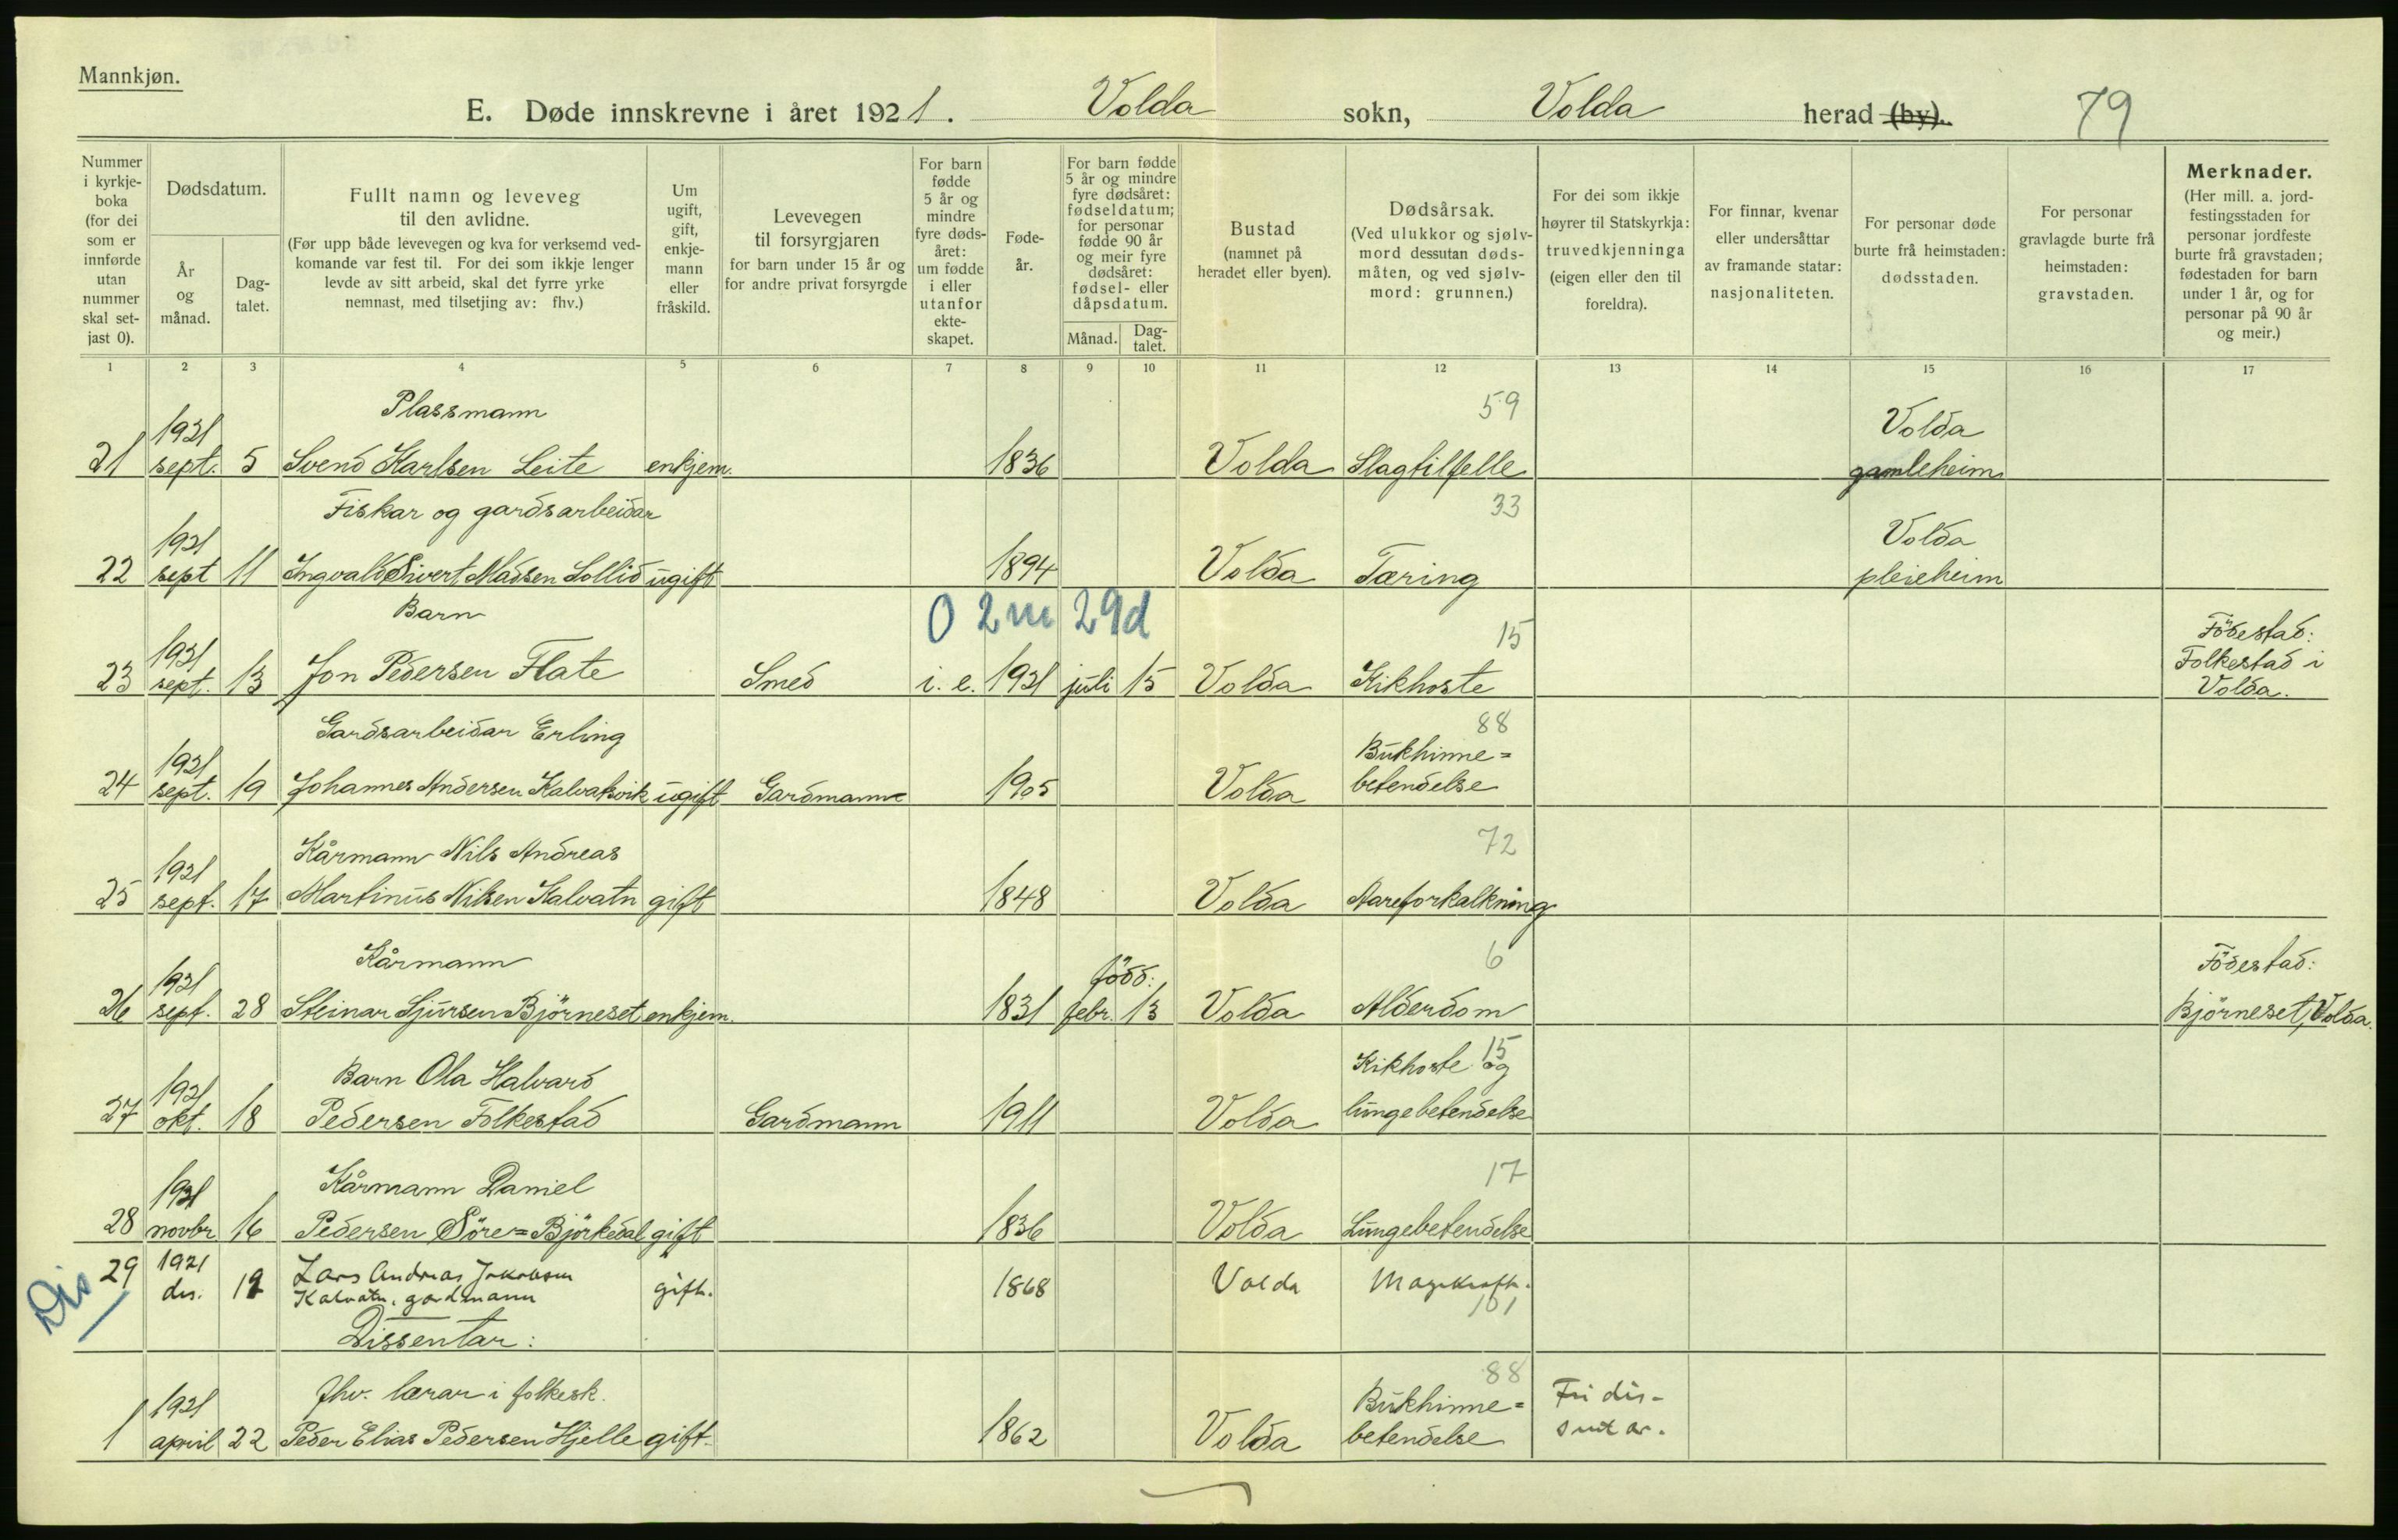 Mannkjøn.
E. Døde innskrevne i året 1921. Volda sokn, Volda herad (by). 79
Nummer i kyrkje-boka (for dei som er innførde utan nummer skal set-jast 0).
Dødsdatum.
År og månad.
Dag-talet.
Fullt namn og leveveg til den avlidne.
(Før upp både levevegen og kva for verksemd ved-komande var fest til. For dei som ikkje lenger levde av sitt arbeid, skal det fyrre yrke nemnast, med tilsetjing av: fhv.)
Um ugift, gift, enkje-mann eller fråskild.
Levevegen til forsyrgjaren for barn under 15 år og for andre privat forsyrgde
For barn fødde 5 år og mindre fyre døds-året: um fødde i eller utanfor ekte-skapet.
Føde-år.
For barn fødde 5 år og mindre fyre dødsåret: fødseldatum; for personar fødde 90 år og meir fyre dødsåret: fødsel- eller dåpsdatum.
Månad.
Dag-talet.
Bustad (namnet på heradet eller byen).
Dødsårsak. (Ved ulukkor og sjølv-mord dessutan døds-måten, og ved sjølv-mord: grunnen.)
For dei som ikkje høyrer til Statskyrkja: truvedkjenninga (eigen eller den til foreldra).
For finnar, kvenar eller undersåttar av framande statar: nasjonaliteten.
For personar døde burte frå heimstaden: dødsstaden.
For personar gravlagde burte frå heimstaden: gravstaden.
Merknader. (Her mill. a. jord-festingsstaden for personar jordfeste burte frå gravstaden; fødestaden for barn under 1 år, og for personar på 90 år og meir.)
1 2 3 4 5 6 7 8 9 10 11 12 13 14 15 16 17
Plassmann 59
1921 Volda
21 sept. 5 Svend Karlsen Leite enkjem. 1836 Volda Slagtilfelle gamleheim
Fiskar og gardsarbeidar 33
1921 Volda
22 sept 11 Ingvald Sivert Madsen Sollid ugift 1894 Volda Tæring pleieheim
Barn 0 2m 29d 15 Födestad:
1921 Folkestad i
23 sept. 13 Jon Pedersen Flate Smed i. e. 1921 juli 15 Volda Kikhoste Volda.
Gardsarbeidar Erling 88
1921 Bukhinne=
24 sept. 19 Johannes Andersen Kalvatvik ugift Gardmann 1905 Volda betendelse
Kårmann Nils Andreas 72
1921
25 sept. 17 Martinus Nilsen Kalvatn gift 1848 Volda Aareforkalkning
Kårmann 6 Födestad:
1921 född:
26 sept. 28 Steinar Sjursen Björneset enkjem. 1831 febr. 13 Volda Alderdom Björneset, Volda.
Barn Ola Halvard Kikhoste og 15
1921
27 okt. 18 Pedersen Folkestad Gardmann 1911 Volda lungebetendelse
Kårmann Daniel 17
1921
28 novbr 16 Pedersen Söre=Björkedal gift 1836 Volda Lungebetendelse
29 1921 Lars Andreas Jakobsen
des. 19 Kalvatn, gardmann gift. 1868 Volda Magekræft. 101
Dis
Dissentar:
fhv. lærar i folkesk. 88
1921 Bukhinne= Fri dis-
1 april 22 Peder Elias Pedersen Hjelle gift. 1862 Volda betendelse sentar.